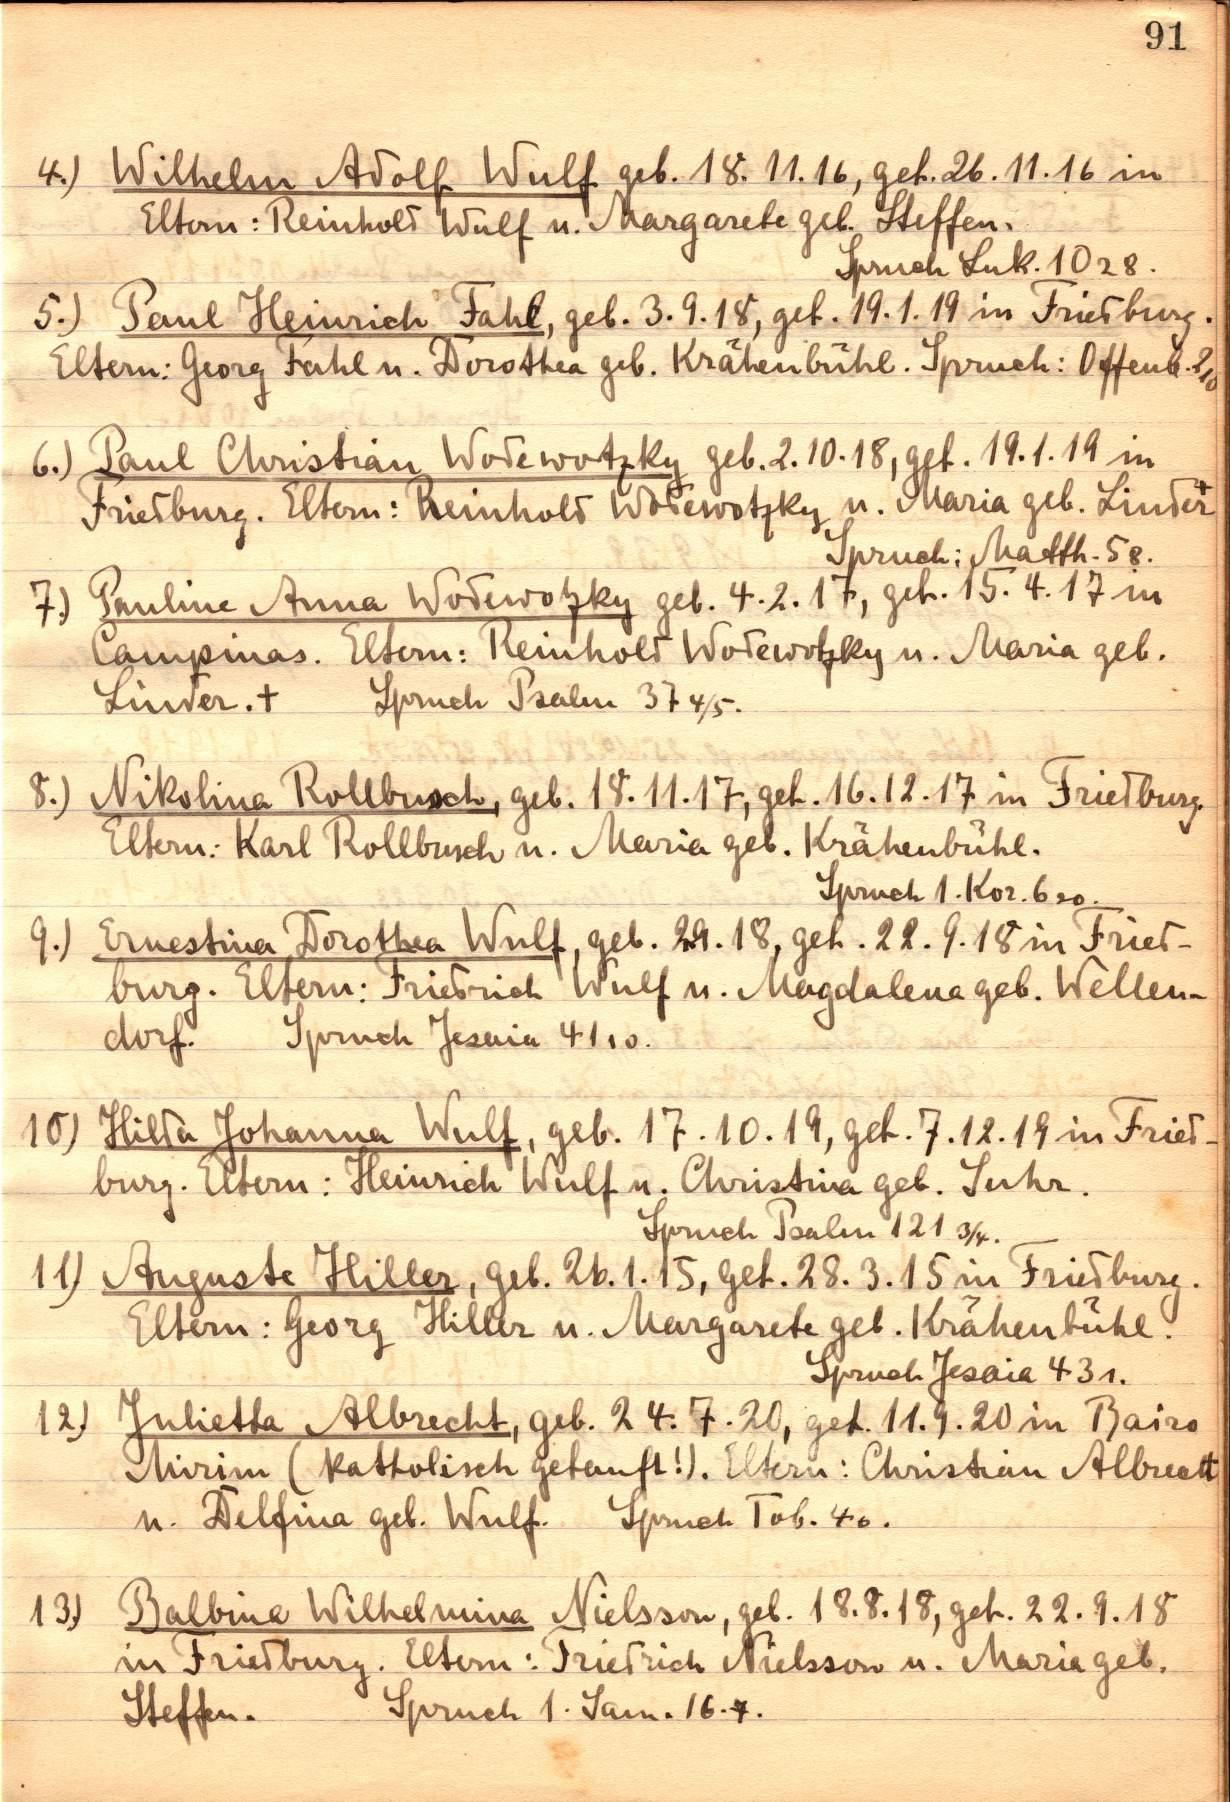 91
4.) Wilhelm Adolf Wulf geb. 18.11.16, get. 26.11.16 in
Eltern: Reinhold Wulf u. Margarete geb. Steffen.
Spruch Luk. 10 28.
5.) Paul Heinrich Fahl, geb. 3.9.18, get. 19.1.19 in Friedburg.
Eltern: Georg Fahl u. Dorothea geb. Krähenbühl. Spruch: Offenb. 2,10
6.) Paul Christian Wodewotzky geb. 2.10.18, get. 19.1.19 in
Friedburg. Eltern: Reinhold Wodewotzky u. Maria geb. Linder +
Spruch: Matth. 5 8.
7.) Pauline Anna Wodewotzky geb. 4.2.17, get. 15.4.17 in
Campinas. Eltern: Reinhold Wodewotzky u. Maria geb.
Linder. + Spruch Psalm 37 4/5.
8.) Nikolina Rollbusch, geb. 18.11.17, get. 16.12.17 in Friedburg.
Eltern: Karl Rollbusch u. Maria geb. Krähenbühl.
Spruch 1. Kor. 6 20.
9.) Ernestina Dorothea Wulf, geb. 2.9.18, get. 22.9.18 in Fried-
burg. Eltern: Friedrich Wulf u. Magdalena geb. Wellen-
dorf. Spruch Jesaia 41 10.
10) Hilda Johanna Wulf, geb. 17.10.19, get. 7.12.19 in Fried-
burg. Eltern: Heinrich Wulf u. Christina geb. Suhr.
Spruch Psalm 121 3/4.
11) Auguste Hiller, geb. 26.1.15, get. 28.3.15 in Friedburg.
Eltern: Georg Hiller u. Margarete geb. Krähenbühl.
Spruch Jesaia 43 1.
12.) Julietta Albrecht, geb. 24.7.20, get. 11.9.20 in Bairo
Mirim (katholisch getauft!). Eltern: Christian Albrecht
u. Delfina geb. Wulf. Spruch Tob. 4 6.
13.) Balbina Wilhelmina Nielsson, geb. 18.8.18, get. 22.9.18
in Friedburg. Eltern: Friedrich Nielsson u. Maria geb.
Steffen. Spruch 1. Sam. 16.7.